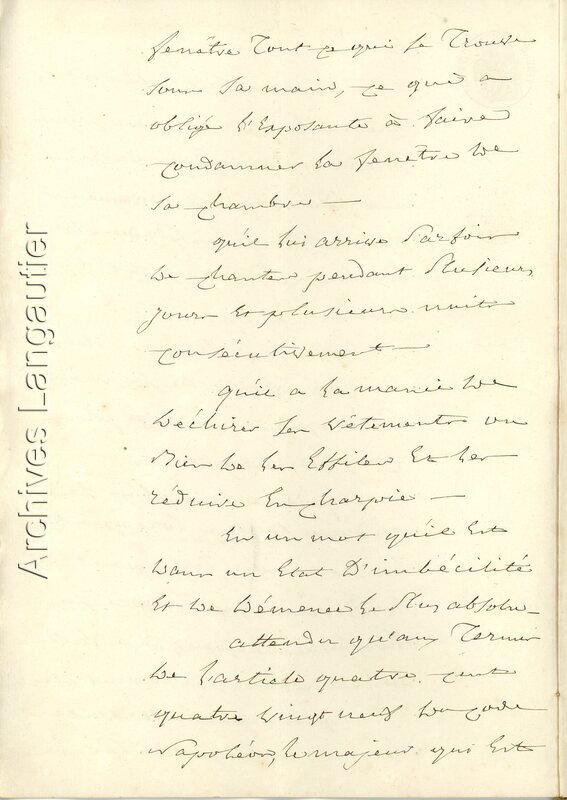 fenêtre tout ce qui se trouve
sous sa main, ce qui a
obligé l'Exposante à faire
condamner la fenêtre de
sa chambre —
qu'il lui arrive parfois
de chanter pendant plusieurs
jours et plusieurs nuits
consécutivement —
qu'il a la manie de
déchirer ses vêtements ou
bien de les Effiler Et les
réduire En charpie —
En un mot qu'il Est
dans un Etat D'imbécilité
Et de démence le plus absolu —
attendu qu'aux Termes
de l'article quatre cent
quatre vingt neuf du code
Napoléon, le majeur qui Est
Archives Langautier